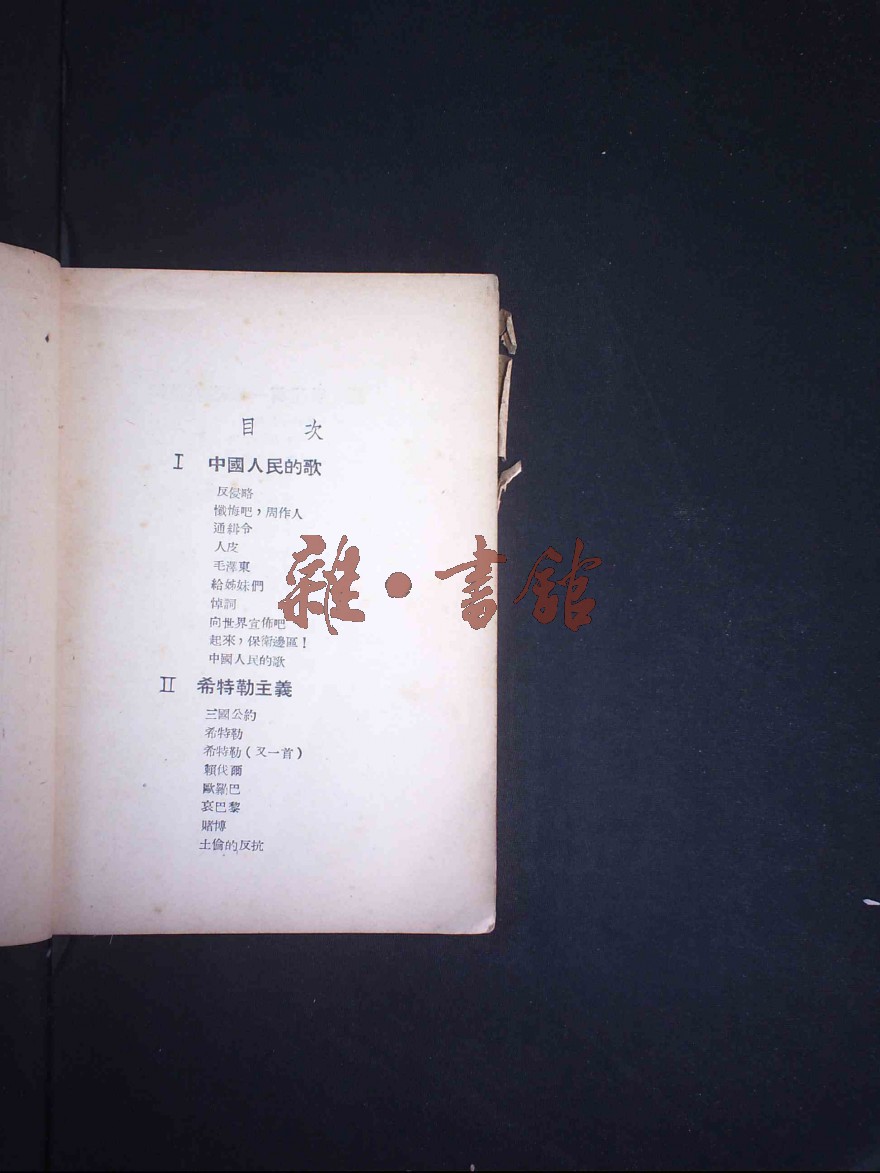 目 次
I 中國人民的歌
反侵略
懺悔吧，周作人
通緝令
人皮
毛澤東
給姊妹們
悼詞
向世界宣佈吧
起來，保衛邊區！
中國人民的歌
II 希特勒主義
三國公約
希特勒
希特勒（又一首）
賴伐爾
歐羅巴
哀巴黎
賭博
土倫的反抗
雜·書館